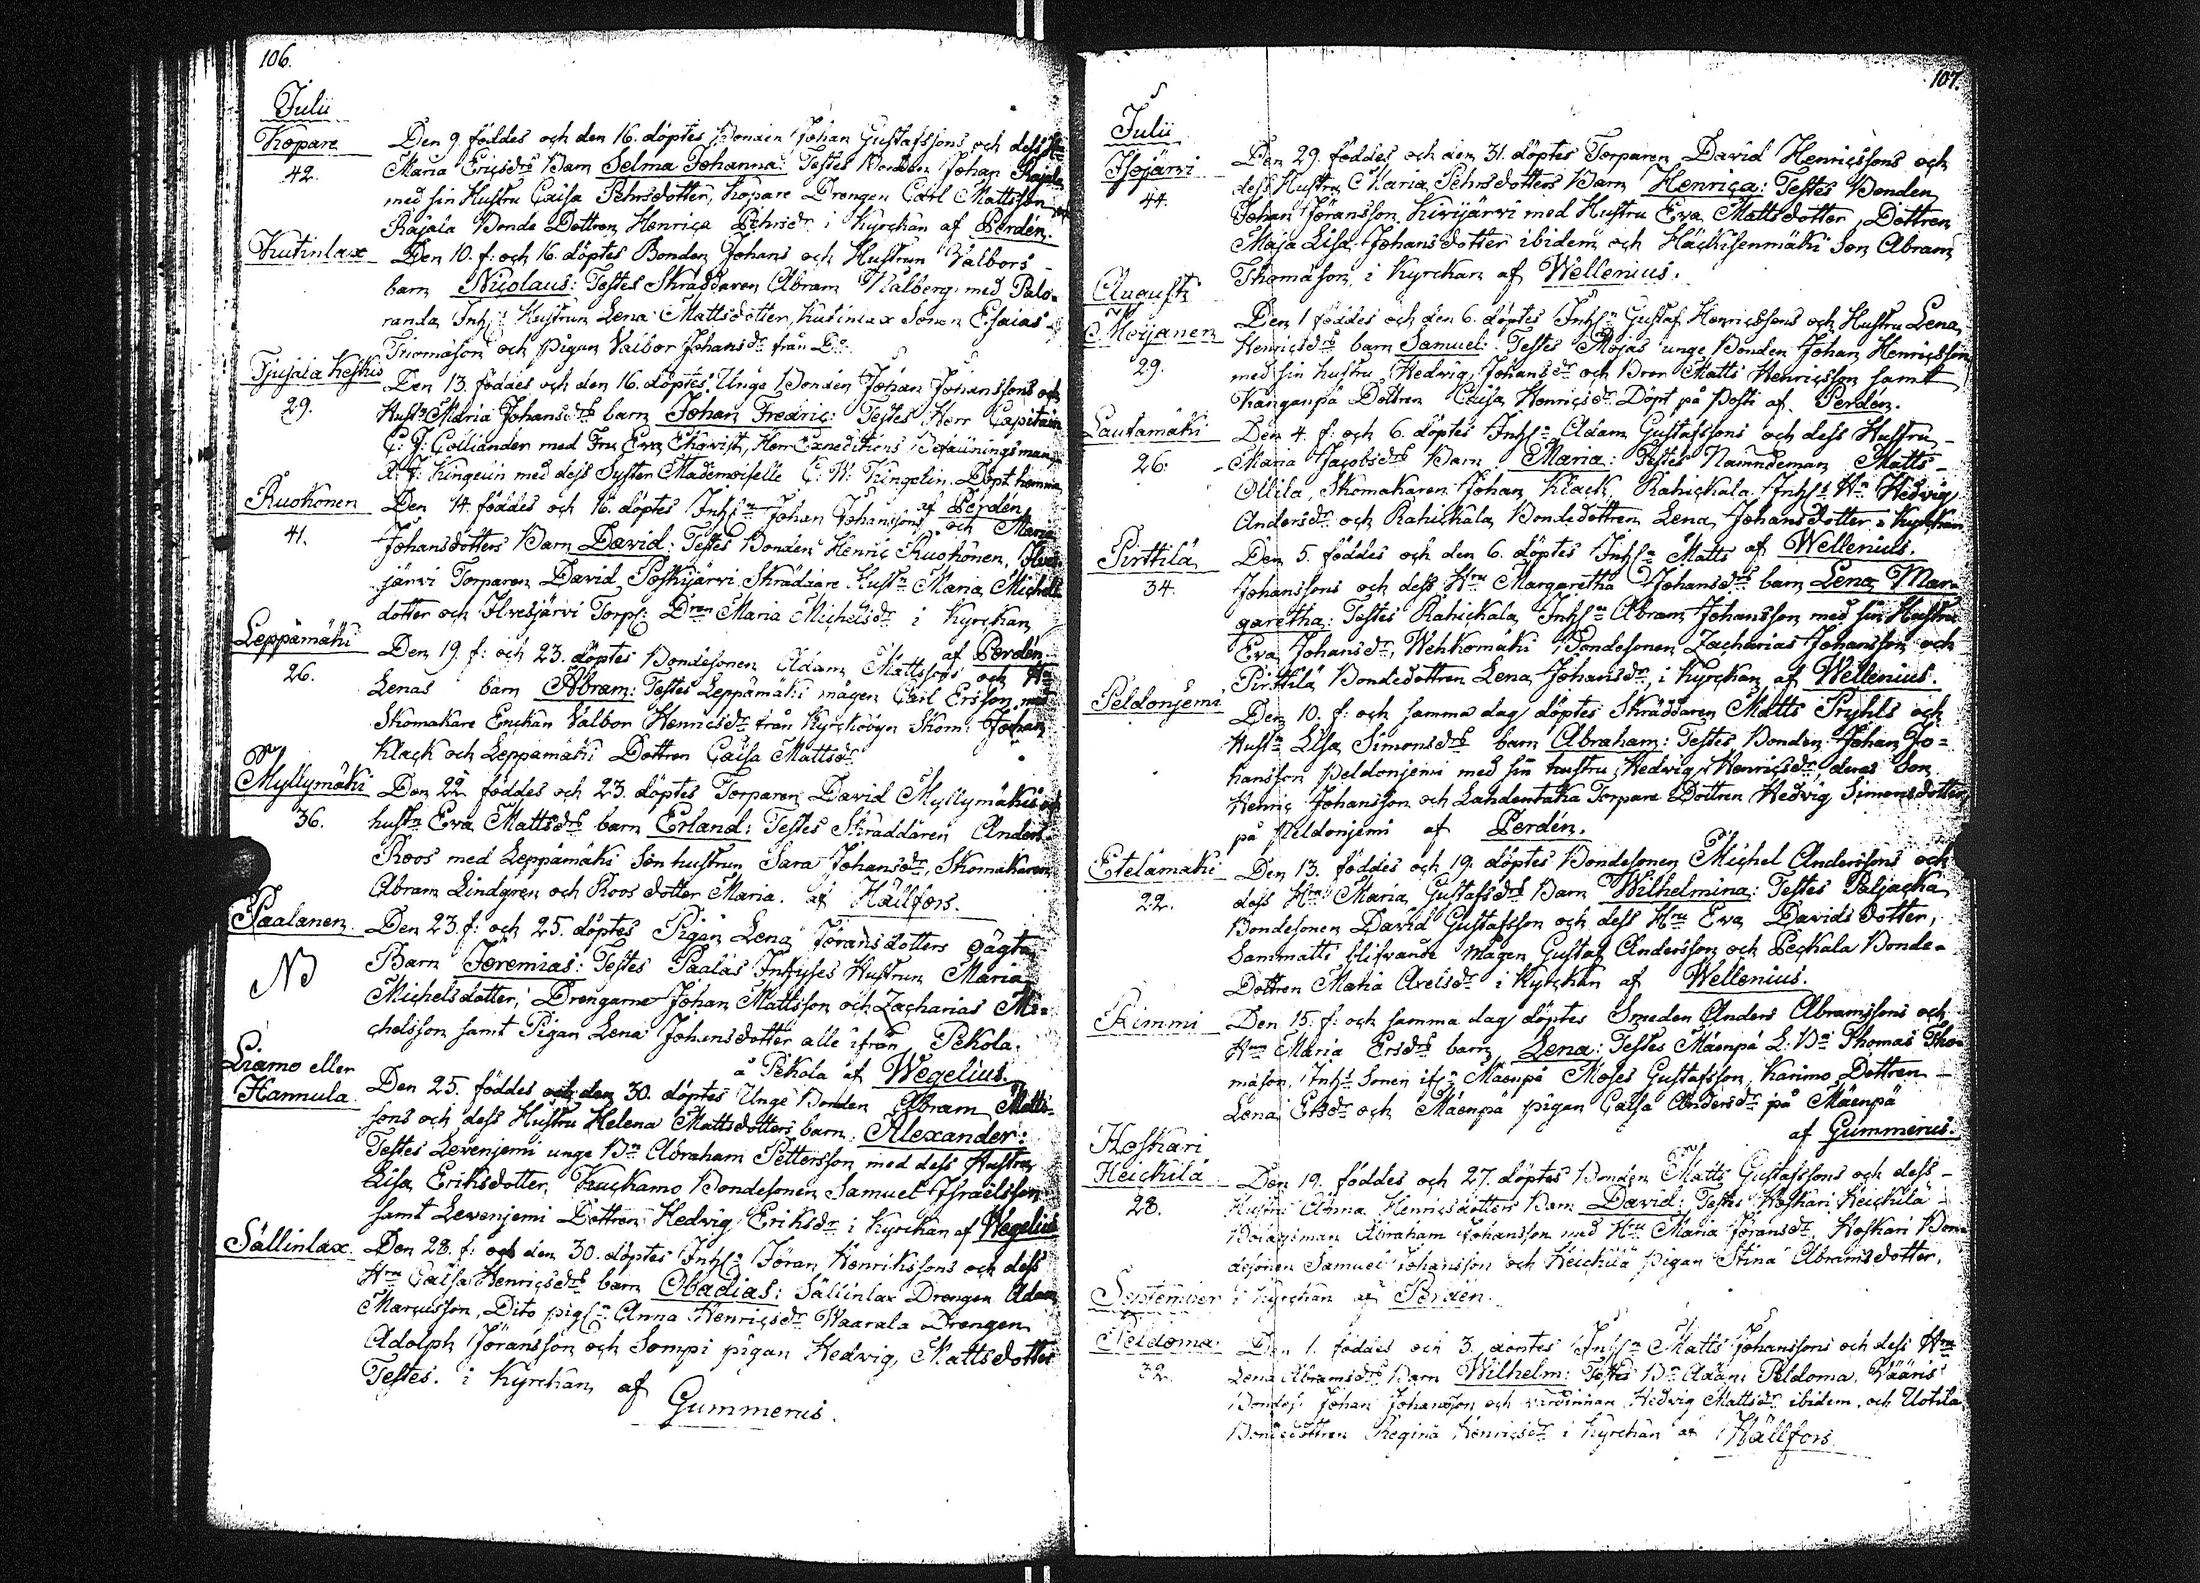 106.
Julii
Kopare
42.
Den 9. föddes och den 16. döptes Bonden Johan Gustafssons och dess Hru
Maria Ericsdrs Barn Selma Johanna: Testes Bonden Johan Rajala
med sin Hustru Caisa Pehrsdotter, Kopare Drengen Carl Mattsson och
Rajala Bonde Dottren Henrica Pehrsdr i Kyrckan af Perdén.
Kutinlax
Den 10. f: och 16. döptes Bonden Johans och Hustrun Valbors
barn Nicolaus: Testes Skräddaren Abram Walberg med Palo-
randa Inhs: Hustrun Lena Mattsdotter, Kutinlax Sonen Esaias
Thomasson och Pigan Valbor Johansdr från Do.
Tjujala Keskis
29.
Den 13. föddes och den 16. döptes Unge Bonden Johan Johanssons och
Hustr Maria Johansdrs barn Johan Fredric: Testes Herr Capitain
C: J: Colliander med Fru Eva Ekqvist, Herr Expeditions Befallningsman
A: F: Kingelin med dess Syster Mademoiselle C: W: Kingelin. Döpt hemma
af Perdén
Ruokonen
41.
Den 14. föddes och 16. döptes Inhsn Johan Johanssons och Maria
Johansdotters Barn David: Testes Bonden Henric Ruokonen, Ilves-
järvi Torparen David Poskijärvi Skräddare Hustn Maria Michels
dotter och Ilvesjärvi Torp: Dren Maria Michelsdr i Kyrckan
af Perdén
Leppämäki
26.
Den 19. f: och 23. döptes Bondesonen Adam Mattssons och Hru
Lenas barn Abram: Testes Leppämäki mågen Carl Ersson med
Skomakare Enckan Valbor Henricsdr från Kyrckobyn Skom: Johan
Klack och Leppämäki Dottren Caisa Mattsdr.
Myllymäki
36.
Den 22 föddes och 23. döptes Torparen David Myllymäkis och
hustr Eva Mattsdrs barn Erland: Testes Skräddaren Anders
Roos med Leppämäki Sonhustrun Sara Johansdr, Skomakaren
Abram Lindgren och Roos dotter Maria. af Hällfors.
Paalanen
NB
Den 23. f: och 25. döptes Pigan Lena Jöransdotters oägta
Barn Jeremias: Testes Paalas Inhyses Hustrun Maria
Michelsdotter, Drengarne Johan Mattsson och Zacharias Mi-
chelsson samt Pigan Lena Johansdotter alle ifrån Pekola.
å Pekola af Wegelius.
Liamo eller
Hannula
Den 25. föddes och den 30. döptes Unge Bonden Abram Matts-
sons och dess Hustru Helena Mattsdotters barn: Alexander:
Testes Levenjemi unge Bn Abraham Pettersson med dess Hustru
Lisa Eriksdotter, Kuckamo Bondesonen Samuel Israelsson
samt Levenjemi Dottren Hedvig Eriksdr i Kyrckan af Wegelius
Sällinlax
Den 28. f: och den 30. döptes Inhsn Jöran Henrikssons och dess
Hru Caisa Henricsdrs barn Obadias: Sällinlax Drengen Adam
Marcusson, Dito pigan Anna Henricsdr Waarala Drengen
Adolph Jöransson och Sompi pigan Hedvig Mattsdotter
Testes. i Kyrckan af
Gummerus.
107.
Julii
Isojärvi
44.
Den 29. föddes och den 31. döptes Torparen David Henricssons och
dess Hustru Maria Pehrsdotters Barn Henrica: Testes Bonden
Johan Jöransson Kivijärvi med Hustru Eva Mattsdotter, Dottren
Maja Lisa Johansdotter ibidem och Häckisenmäki Son Abram
Thomasson i Kyrckan af Wellenius.
Augusti
Moijanen
29.
Den 1 föddes och den 6. döptes Inhsn Gustaf Henricssons och Hustru Lena
Henricsdrs barn Samuel: Testes Mojas unge Bonden Johan Henricsson
med sin hustru Hedvig Johansdr och Bror Matts Henricsson samt
Kanganpä Dottren Caisa Henricsdr. Döpt på Posti af Perdén.
Lautamäki
26.
Den 4. f: och 6. döptes Inhsn Adam Gustafssons och dess Hustru
Maria Jacobsdrs Barn Maria: Testes Nämndeman Matts
Ollila, Skomakaren Johan Klack, Rahickala Inhs: Hn Hedvig
Andersdr och Rahickala Bondedottren Lena Johansdotter i Kyrckan
af Wellenius.
Pirttilä
34.
Den 5. föddes och den 6. döptes Inhsn Matts
Johanssons och dess Hru Margaretha Johansdrs barn Lena Mar-
garetha: Testes Rahickala Inhsn Abram Johansson med sin Hustru
Eva Johansdr, Wehkomäki Bondesonen Zacharias Johansson och
Pirttilä Bondedottren Lena Johansdr, i Kyrckan af Wellenius.
Peldonjemi
Den 10. f: och samma dag döptes Skräddaren Matts Pryhls och
Hustr Lisa Simonsdrs barn Abraham: Testes Bonden Johan Jo-
hansson Peldonjemi med sin hustru Hedvig Henricsdr, deras Son
Henric Johansson och Landentaka Torpare Dottren Hedvig Simonsdotter
på Peldonjemi af Perdén.
Etelämäki
22.
Den 13. föddes och 19. döptes Bondesonen Michel Anderssons och
dess Hru Maria Gustafsdrs Barn Wilhelmina: Testes Paljacka
Bondesonen David Gustafsson och dess Hru Eva Davidsdotter,
Sammatti blifvande Mågen Gustaf Andersson och Peckala Bonde-
Dottren Maria Axelsdr i Kyrckan af Wellenius.
Kimmi
Den 15. f: och samma dag döptes Smeden Anders Abramssons och
Hrun Maria Ersdrs barn Lena: Testes Mäenpä L: Bn Thomas Tho-
masson, Inhs Sonen ifrn Mäenpä Moses Gustafsson, Karimo Dottren
Lena Ersdr och Mäenpä pigan Caisa Andersdr på Mäenpä
af Gummerus.
Koskari
Heickilä
28.
Den 19. föddes och 27. döptes Bonden Matts Gustafssons och dess
Hustru Anna Henricsdotters Barn David: Testes Koskari Heickilä
Bolagsman Abraham Johansson med Hru Maria Jöransdr, Koskari Bon-
desonen Samuel Johansson och Heickilä pigan Stina Abramsdotter,
i Kyrckan af Perdén.
September
Peldoma
32.
Den 1. föddes och 3. döptes Inhsn Matts Johanssons och dess Hru
Lena Abramsdrs Barn Wilhelm: Testes Bn Adam Peldoma, Vääris
Bondes: Johan Johansson och värdinnan Hedvig Mattsdr ibidem, och Uotila
Bondedottren Regina Henricsdr i Kyrckan af Hällfors